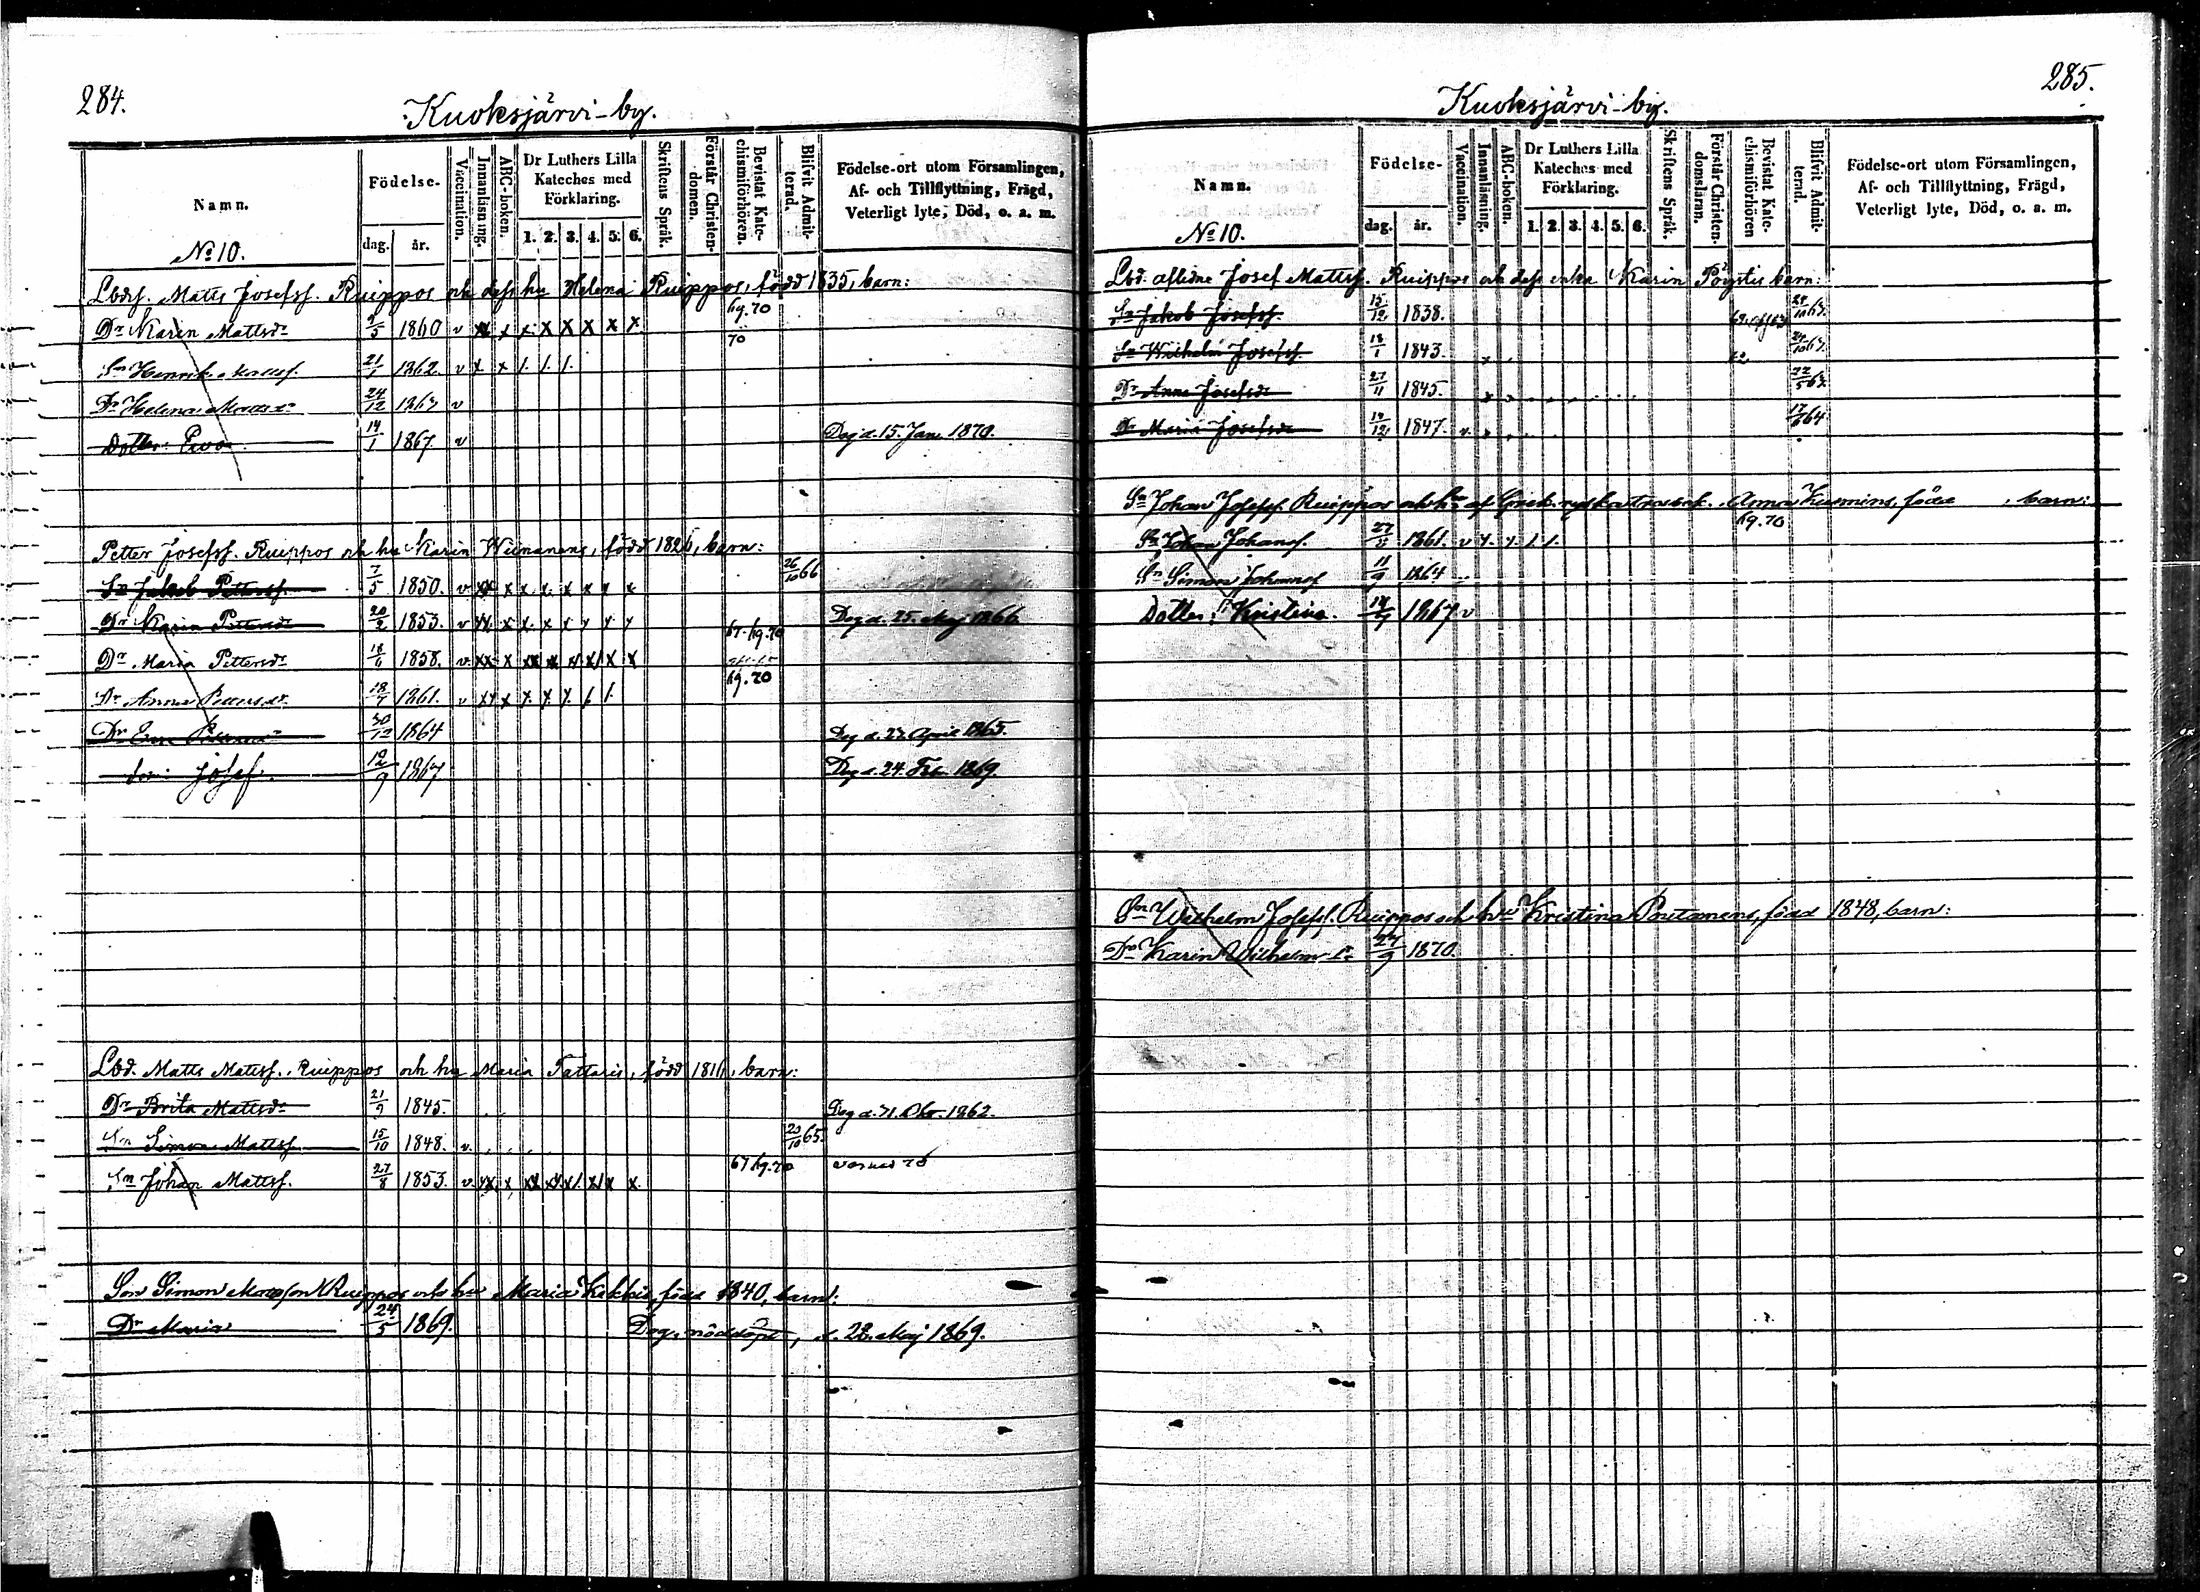 284.
Kuoksjärvi-by.
Namn.
Födelse-
dag. år.
Vaccination.
Innanläsning.
ABC-boken.
Dr Luthers Lilla Kateches med Förklaring.
1. 2. 3. 4. 5. 6.
Skriftens Språk.
Förstår Christendomen.
Bevistat Katechismiförhören.
Blifvit Admitterad.
Födelse-ort utom Församlingen,
Af- och Tillflyttning, Frägd,
Veterligt lyte, Död, o. a. m.
No 10.
Matts Josefsf. Ruippos och dess hu Helena Ruippos, född 1835, barn:
69.70
Dr Karin Mattsdr 9/5 1860 v x x x x x x x x
70
Sn Henrik Mattsf. 21/1 1862. v x x /. /. /.
Dr Helena Mattsdr 24/12 1863 v
Dotter: Ewa 14/1 1867. v Dog d. 15. Jan. 1870.
Petter Josefsf. Ruippos och hu Karin född 1826, barn:
Sn Jakob Pettersf. 7/5 1850. v xx x x x x x x x 26/10 66
Dr Karin Pettersdr 20/2 1853. v Dog d. 25. Maj 1866.
67. 69.70
Dr Maria Pettersdr 18/6 1858. v. xx x xx x x x x x
69.70
Dr Anna Pettersdr 18/7 1861. v
Dr Eva 30/12 1864 Dog d. 27. April 1865.
Son: Josef. 12/9 1867 Dog d. 24. Feb. 1869.
Lbd. Matts Mattsf. Ruippos och hu Maria Tattaris, född 1816, barn:
Dr Brita Mattsdr 21/9 1845. Dog d. 31. Okt. 1862.
Sn Simon Mattsf. 15/10 1848. v. 29/10 65.
67 69.70
Sn Johan Mattsf. 27/8 1853. v.
Son Simon Ruippos och hu Maria född 1840, barn:
Dr Maria 24/5 1869. Dog, nöddöpt, d. 28. Maj 1869.
285.
Kuoksjärvi-by.
Namn.
Födelse-
dag. år.
Vaccination.
Innanläsning.
ABC-boken.
Dr Luthers Lilla Kateches med Förklaring.
1. 2. 3. 4. 5. 6.
Skriftens Språk.
Förstår Christendomsläran.
Bevistat Katechismiförhören
Blifvit Admitterad.
Födelse-ort utom Församlingen,
Af- och Tillflyttning, Frägd,
Veterligt lyte, Död, o. a. m.
No 10.
Lbd. aflidne Josef Mattsf. Ruippos och dess enka Karin Pöystis barn:
Sn Jakob Josefsf. 15/12 1838. 24/10 63.
Sn Wilhelm Josefsf. 18/1 1843. 24/10 63.
Dr Anna Josefsdr 27/11 1845. 22/5 63.
Dr Maria Josefsdr 1847. v. 64
Sn Johan Josefsf. Ruippos och hu af Grek. Anna Kusmins, född , barn:
69.70
Sn Johan Johansf. 1861. v
Sn Simon Johansf 11/9 1864
Dotter: Kristina. 1867. v
Sn Wilhelm Josefsf. Ruippos och hu Kristina född 1848, barn:
Dr Karin Wilhelmsdr 27/9 1870.